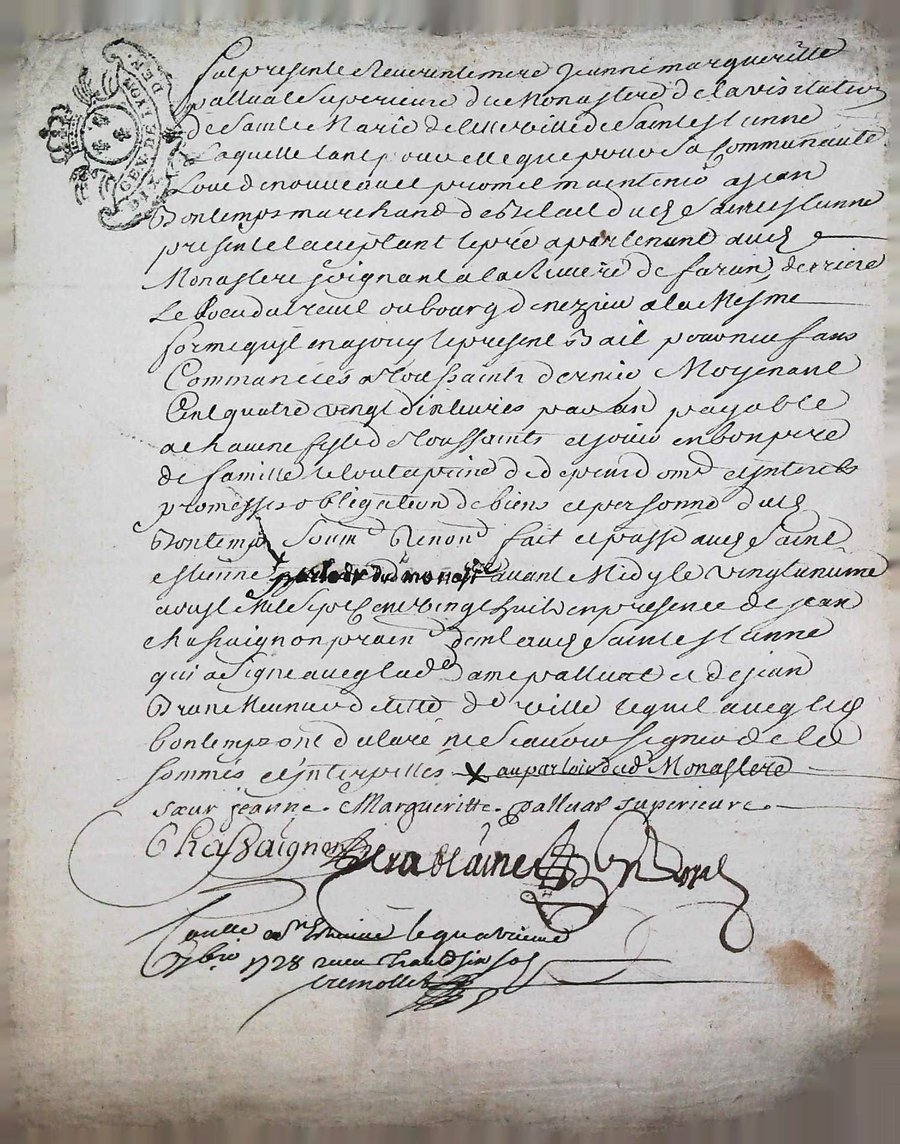 GEN. DE LYON
DIX DEN. DER.
Fut presente Reverente mere Jeanne margueritte
palluat Superieure du Monastere de la visitation
de Sainte Marie de cette ville de Saint estienne
Laquelle tant pour elle que pour Sa Communauté
Loue de nouveau et promet maintenir a jean
Bontemps marchand de Bestail dud Saint estienne
present et aceptant le pré apartenant aud
Monastere joignant a la Riviere de furan derriere
Le au bourg a la Mesme
forme qu'il en a jouy le present Bail pour neuf ans
Commancées a toussaints dernier Moyenant
Cent quatre vingt dix livres par an payable
a chacune feste de toussaints et jouir en bon pere
de famille le tout a peine de depend dom et interests
promesses obligation de biens et personne dud
Bontemps Soumd Renond fait et passé aud Saint
estienne avant Midy le vingt unieme
aoust Mil Sept cent vingt huit en presence de jean
chassaignon prat demt aud Saint estienne
qui a Signé avec lade Dame palluat et de jean
Brune Meunier de cette de ville lequel avec led
bontemps ont declaré ne Scavoir Signer de ce
sommés et interpellés X au parloir dud Monastere
sœur jeanne Margueritte palluat superieure
Chassaignon

Controllé a St Estienne le quatrieme
7bre 1728 receu sols